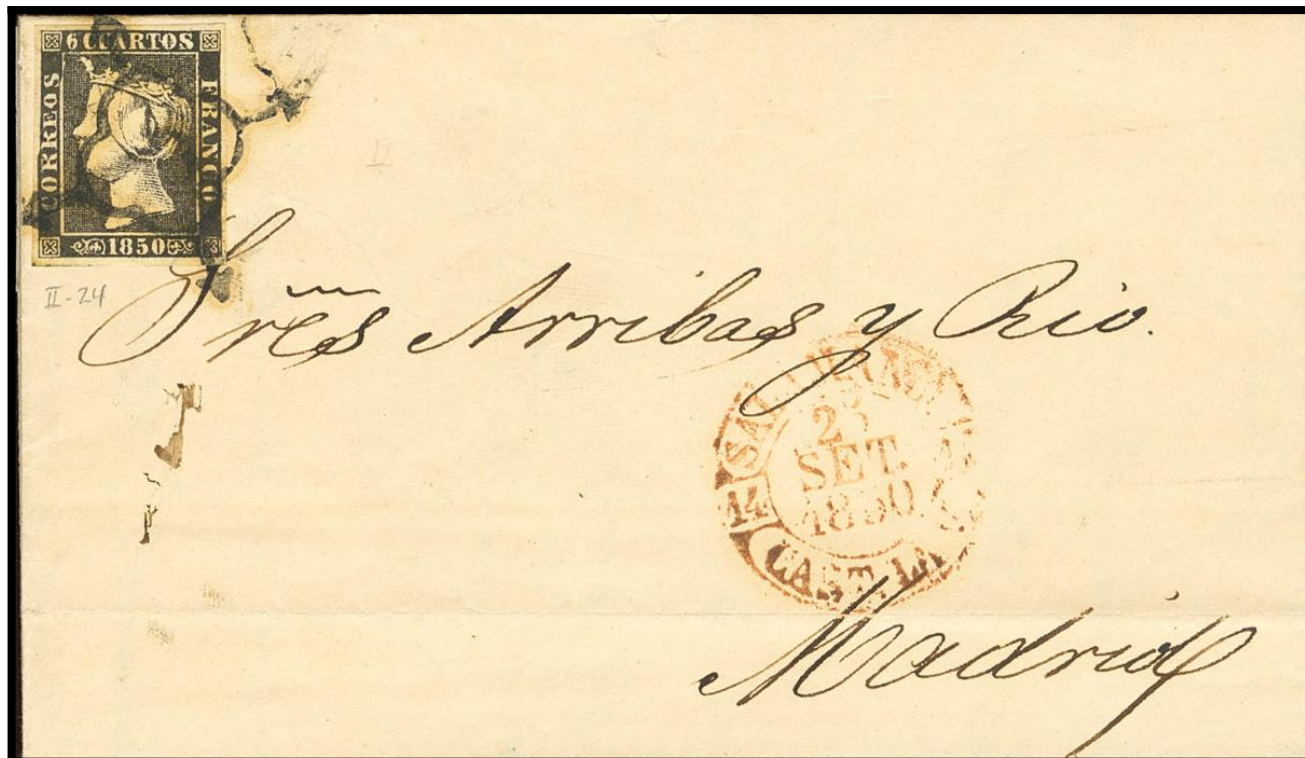 6 CUARTOS
CORREOS
FRANCO
1850
II
II-24
Sres Arribas y Rio.
SALAMANCA
SET.
1850
14
CAST. LA
Madrid